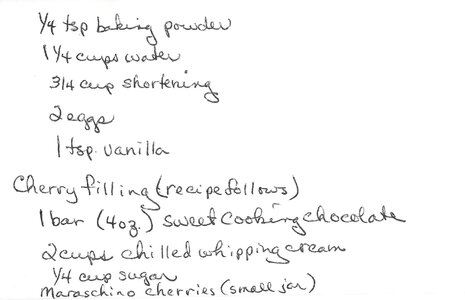 1/4 tsp baking powder
1 1/4 cups water
3/4 cup shortening
2 eggs
1 tsp. vanilla
Cherry filling (recipe follows)
1 bar (4oz.) sweet cooking chocolate
2 cups chilled whipping cream
1/4 cup sugar
Maraschino cherries (small jar)